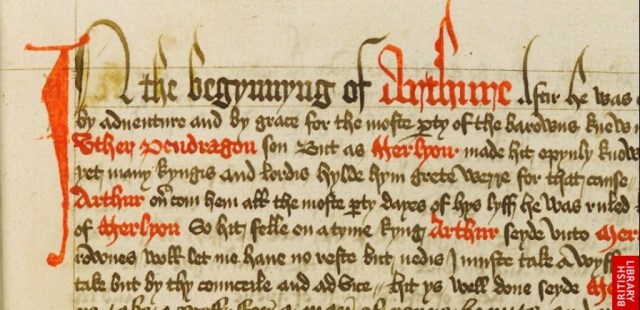 In the begynnyng of Arthure Aftir he was
by adventure and by grace for the moste pty of the barowns knew
Uther Pendragon son But as Merlyon made hit opynly know
yet many kyngis and lordis hylde hym grete werre for that cause
Arthur on com hem all the moste pty dayes of hys lyff he was ruled
of Merlyon So hit felle on a tyme kyng Arthur seyde unto Mer
rdowns woll let me have no reste but nedis I muste take a wyff
take but by thy counceile and advice hit ys well done seyde
BRITISH
LIBRARY